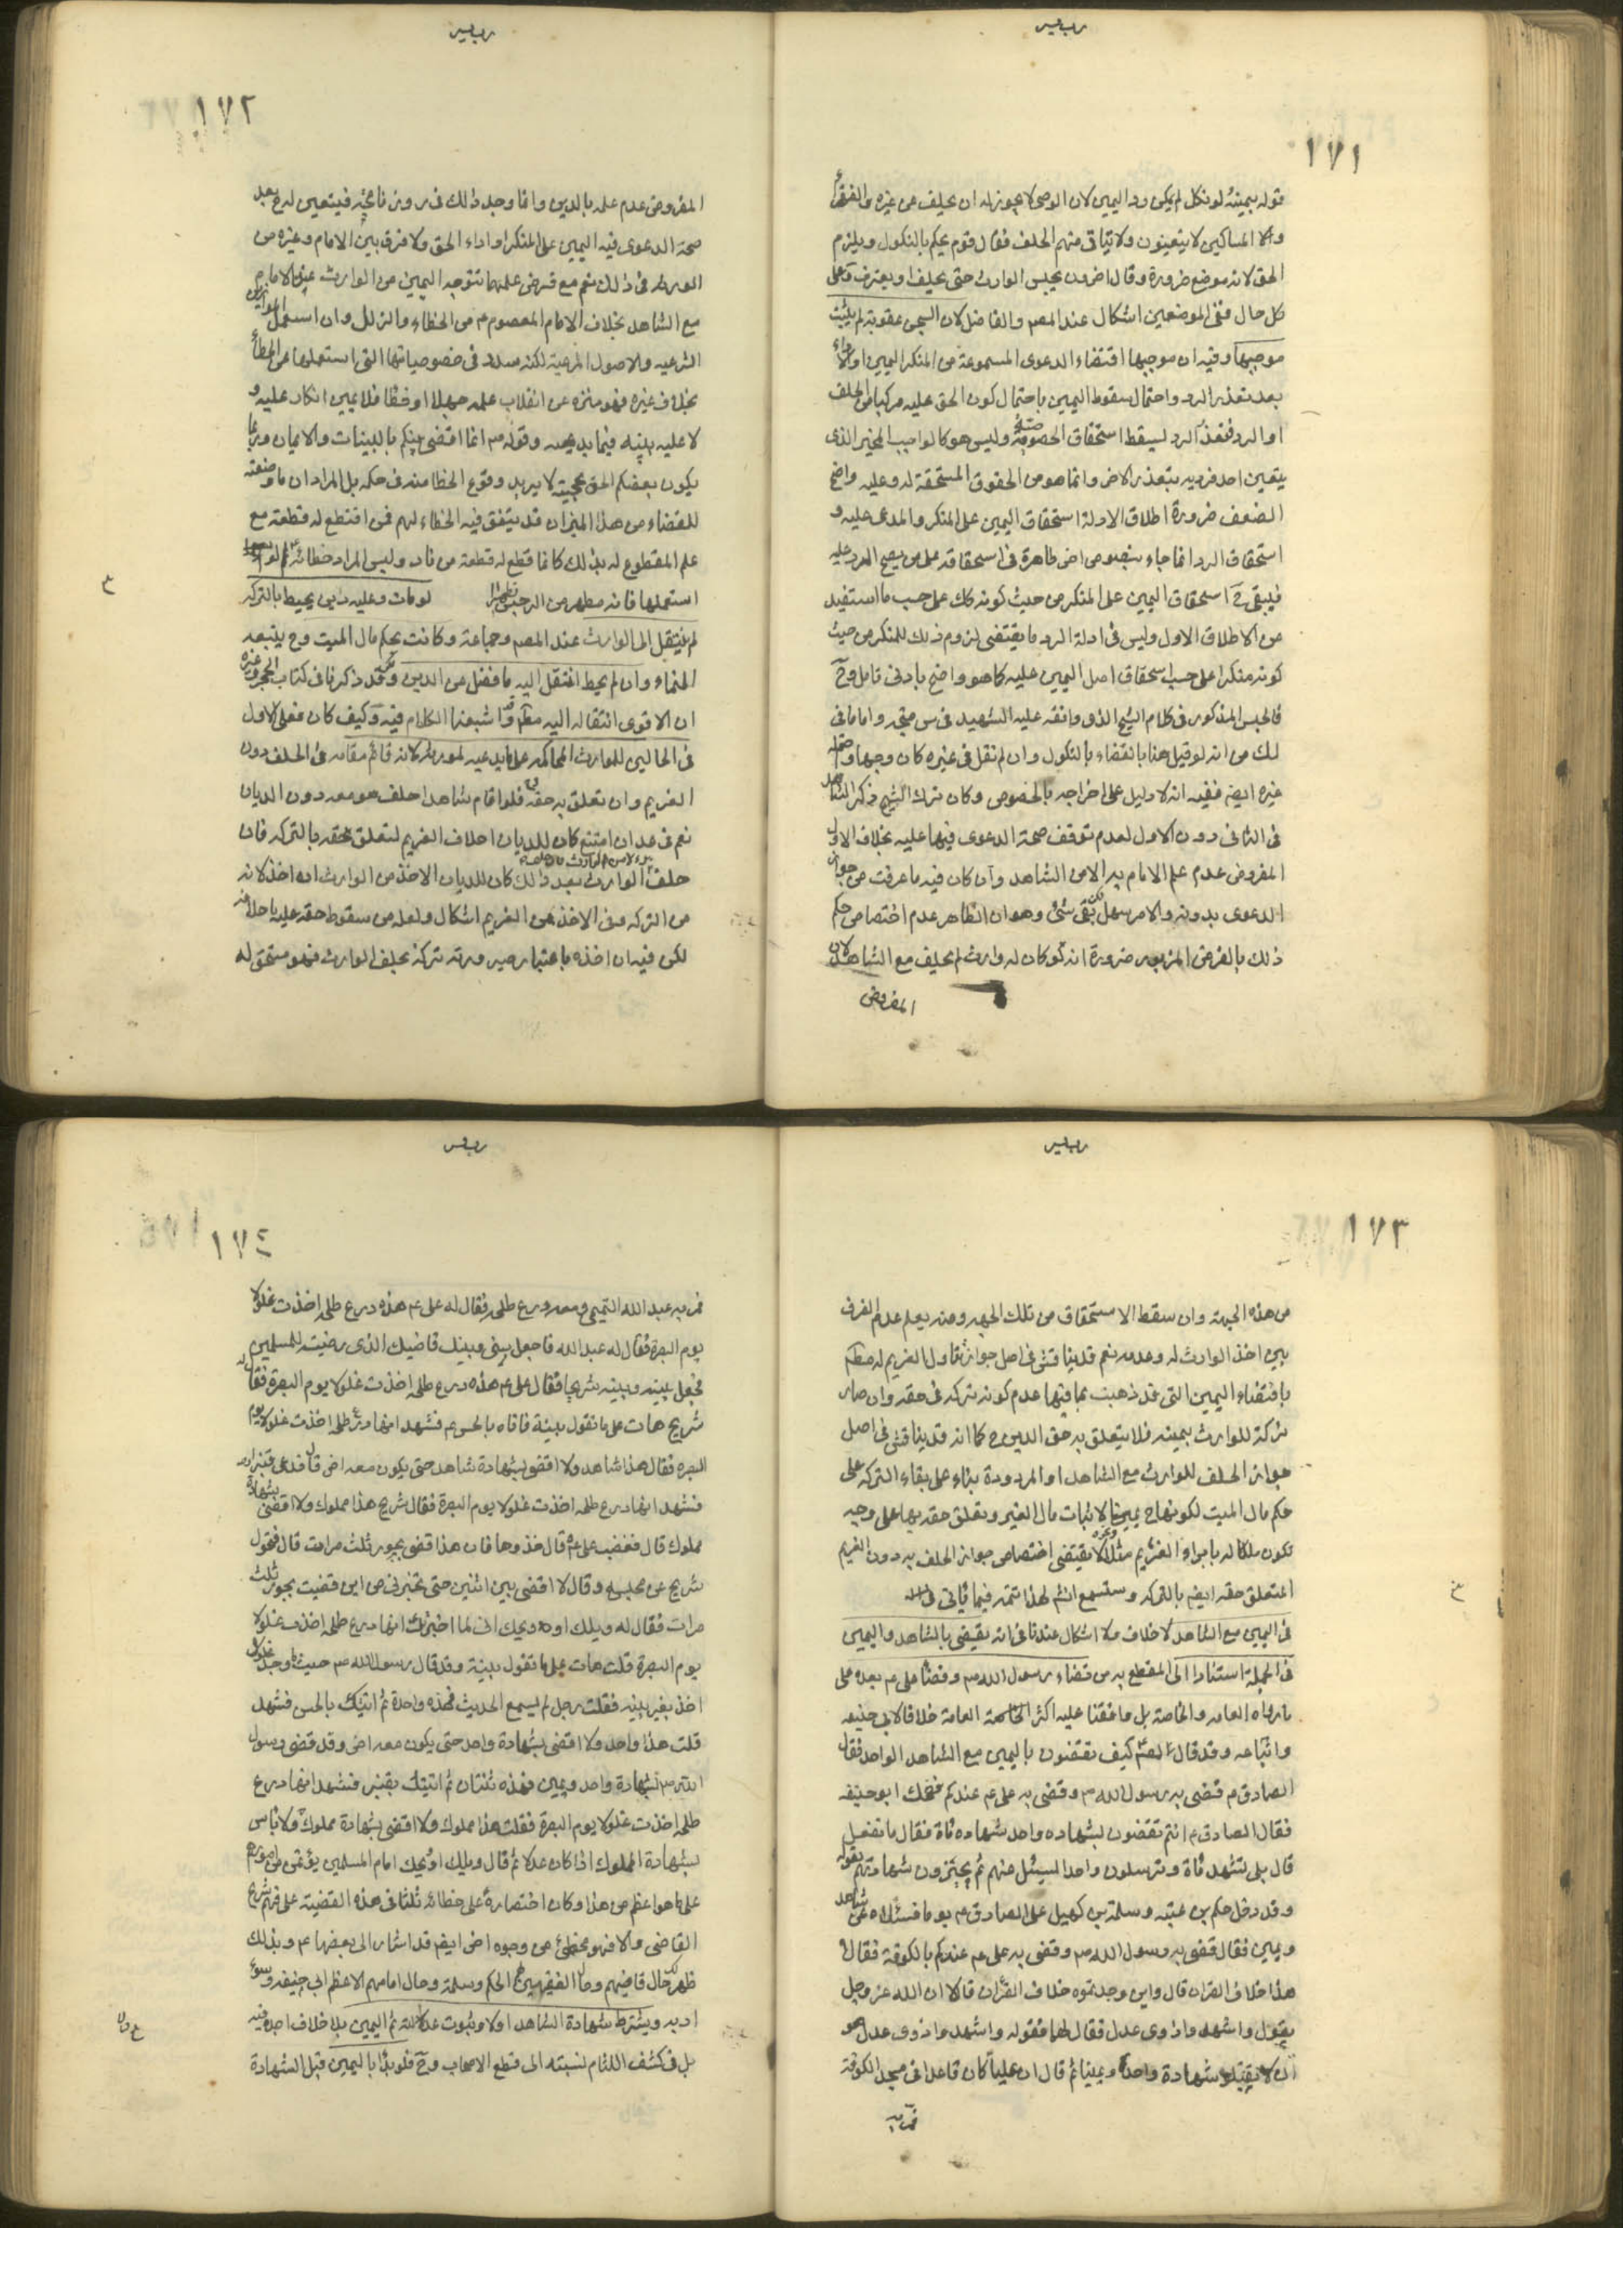 رب يسر
١٧١
قوله بيمينه لو نكل لم يمكن رد اليمين لان الوصى لا يجوز له ان يحلف عن غيره والفقراء
والمساكين لا يتعينون ولا يتاتى منهم الحلف فقال قوم يحكم بالنكول ويلزم
الحق لانه موضع ضرورة وقال اخرون يحبس الوارث حتى يحلف او يعترف وعلى
كل حال ففى الموضعين اشكال عند المصـ والفاضل لان السجن عقوبة لم يثبت
موجبها وفيه ان موجبها اقتضاء الدعوى المسموعة من المنكر اليمين او الاداء
بعد تعذر الرد واحتمال سقوط اليمين باحتمال كون الحق عليه مركبا من الحلف
او الرد فتعذر الرد ليسقط استحقاق وليس هو كالواجب المخير الذى
يتعين احد فرديه بتعذر الاخر وانما هو من الحقوق المستحقة له وعليه واضح
الضعف ضرورة اطلاق الادلة استحقاق اليمين على المنكر والمدعى عليه و
استحقاق الرد انما جاء بنصوص اخر ظاهرة فى استحقاقه على من يصح الرد عليه
فيبقى ح استحقاق اليمين على المنكر من حيث كونه كك على حسب ما استفيد
من الاطلاق الاول وليس فى ادلة الرد ما يقتضى لزوم ذلك للمنكر من حيث
كونه منكرا على حسب استحقاق اصل اليمين عليه كما هو واضح بادنى تامل وح
فالحبس المذكور فى كلام الشيخ الذى وافقه عليه الشهيد فى س متجه واما ما فى
لك من انه لو قيل هنا بالقضاء بالنكول وان لم نقل فى غيره كان وجها
غيره ايضم ففيه انه لا دليل على اخراجه بالخصوص وكان ترك الشيخ ذكر الشاهد
فى الثانى دون الاول لعدم توقف صحة الدعوى فيها عليه بخلاف الاول
المفروض عدم علم الامام به الا من الشاهد وان كان فيه ما عرفت من جواز
الدعوى بدونه والامر سهل بقى شئ وهو ان الظاهر عدم اختصاص حكم
ذلك بالفرض المزبور ضرورة انه لو كان له وارث لم يحلف مع الشاهد لان
المفروض
رب يسر
١٧٢
المفروض عدم علمه بالدين وانما وجد ذلك فى روزنامجته فيتعين له ح بعد
صحة الدعوى فيه اليمين على المنكر او اداء الحق ولا فرق بين الامام وغيره من
الورثه فى ذلك نعم مع فرض علمهما تتوجه اليمين من الوارث غير الامام
مع الشاهد بخلاف الامام المعصوم م من الخطاء والزلل وان استعمل الموازين
الشرعيه والاصول المرعية لكنه مسدد فى خصوصياتها التى استعملها عن الخطأ
بخلاف غيره فهو منزه عن انقلاب علمه جهلا او خطا فلا يمين انكار عليه و
لا عليه بينه فيما يدعيه وقوله صـ انما اقضى بينكم بالبينات والايمان وربما
يكون بعضكم الحق بحجيته لا يريد وقوع الخطا منه فى حكمه بل المراد ان ما وضعته
للقضاء من هذا الميزان قد يتفق فيه الخطاء لهم فمن اقتطع له قطعة مع
علم المقطوع له بذلك كانما قطع له قطعة من نار وليس المراد خطائه
استعملها فانه مطهر من الرجس تطهيرا لو مات وعليه دين يحيط بالتركه
لم ينتقل الى الوارث عند المصـ وجماعة وكانت بحكم مال الميت وح يتبعه
النماء وان لم يحط انتقل اليه ما فضل عن الدين وقد ذكرنا فى كتاب الحجر وغيره
ان الاقوى انتقاله اليه مطم واشبعنا الكلام فيه وكيف كان فعلى الاول
فى الحالين للوارث المحاكمه على ما يدعيه لمورثه لانه قائم مقامه فى الحلف دون
الغريم وان تعلق به حقه فلو اقام شاهدا حلف هو معه دون الديان
نعم فى عد ان امتنع كان للديان احلاف الغريم لتعلق حقه بالتركه فان
حلف الوارث بعد ذلك كان للديان الاخذ من الوارث ان اخذ لانه
من التركه وفى الاخذ من الغريم اشكال ولعله من سقوط حقه عليه باحلافه
لكن فيه ان اخذه باعتبار صيرورته تركة بحلف الوارث فهو مستحق له
ع
رب يسر
١٧٣
من هذه الجهة وان سقط الاستحقاق من تلك الجهه ومنه يعلم عدم الفرق
بين اخذ الوارث له وعدمه نعم قد يناقش فى اصل جواز تناول الغريم له مطم
باقتضاء اليمين التى قد ذهبت بما فيها عدم كونه تركه فى حقه وان صار
تركة للوارث بيمينه فلا يتعلق به حق الدين ح كما انه قد يناقش فى اصل
جواز الحلف للوارث مع الشاهد او المردودة بناء على بقاء التركه على
حكم مال الميت لكونها ح يمينا لاثبات مال الغير وتعلق حقه بها على وجه
تكون ملكا له بابراء الغريم مثلا لا يقتضى اختصاص جواز الحلف به دون الغريم
المتعلق حقه ايضم بالتركه وستسمع انشم لهذا تتمه فيما ياتى
فى اليمين مع الشاهد لا خلاف ولا اشكال عندنا فى انه يقضى بالشاهد واليمين
فى الجملة استنادا الى المقطع به من قضاء رسول الله صـ وقضاء على عم بعده على
ما رواه العامه والخاصة بل وافقنا عليه اكثر العامة خلافا لابى حنيفه
واتباعه وقد قال كيف تقضون باليمين مع الشاهد الواحد فقال
الصادق م قضى به رسول الله صـ وقضى به على عم عندكم فضحك ابو حنيفه
فقال الصادق م انتم تقضون بشهاده واحد شهاده ماة فقال ما نفعل
قال بلى تشهد ماة وترسلون واحدا ليسئل عنهم ثم يجيزون شهادتهم بقوله
وقد دخل حكم بن عتبه وسلمة بن كهيل على الصادق م يوما فسئلاه عن شاهد
ويمين فقال قضى به رسول الله صـ وقضى به على عم عندكم بالكوفة فقالا
هذا خلاف القران قال واين وجدتموه خلاف القران قالا ان الله عز وجل
يقول واشهدوا ذوى عدل فقال لهما فقوله واشهدوا ذوى عدل هو
ان لا تقبلوا شهادة واحد ويمينا ثم قال ان عليا كان قاعدا فى مسجد الكوفة
فمر به
رب يسر
١٧٤
فمر به عبد الله التميمى ومعه درع طلحه فقال له على عم هذه درع طلحه اخذت غلولا
يوم البصرة فقال له عبد الله فاجعل بينى وبينك قاضيك الذى رضيته للمسلمين
فجعل بينه وبينه شريحا فقال على عم هذه درع طلحه اخذت غلولا يوم البصرة فقال له
شريح هات على ما تقول بينة فاتاه بالحسن عم فشهد انها درع طلحه اخذت غلولا يوم
البصره فقال هذا شاهد ولا اقضى بشهادة شاهد حتى يكون معه اخر قال فدعى قنبرا
فشهد انها درع طلحه اخذت غلولا يوم البصرة فقال شريح هذا مملوك ولا اقضى بشهادة
مملوك قال فغضب على عم قال خذوها فان هذا قضى بجور ثلث مرات قال فتحول
شريح عن مجلسه وقال لا اقضى بين اثنين حتى تخبرنى من اين قضيت بجور ثلث
مرات فقال له ويلك او ويحك انى لما اخبرتك انها درع طلحه اخذت غلولا
يوم البصرة قلت هات على ما تقول بينة وقد قال رسول الله صـ حيث ما وجد غلول
اخذ بغير بينه فقلت رجل لم يسمع الحديث فهذه واحدة ثم اتيتك بالحسن فشهد
قلت هذا واحد ولا اقضى بشهادة واحد حتى يكون معه اخر وقد قضى رسول
الله صـ بشهادة واحد ويمين فهذه ثنتان ثم اتيتك بقنبر فشهد انها درع
طلحه اخذت غلولا يوم البصرة فقلت هذا مملوك ولا اقضى بشهادة مملوك ولا باس
بشهادة المملوك اذا كان عدلا ثم قال ويلك او ويحك امام المسلمين يؤتمن من امورهم
على ما هو اعظم من هذا وكان اختصاره على خطائه ثلثا فى هذه القضية على فهم شريح
القاضى والا فهو مخطئ من وجوه اخر ايضم قد اشار الى بعضها عم وبذلك
ظهر لك حال قاضيهم وحال الفقيهين الحكم وسلمة وحال امامهم الاعظم ابى حنيفه وسوء
ادبه ويشترط شهادة الشاهد اولا وثبوت عدالته ثم اليمين بلا خلاف اجده فيه
بل فى كشف اللثام نسبته الى قطع الاصحاب وح فلو بدأ باليمين قبل الشهادة